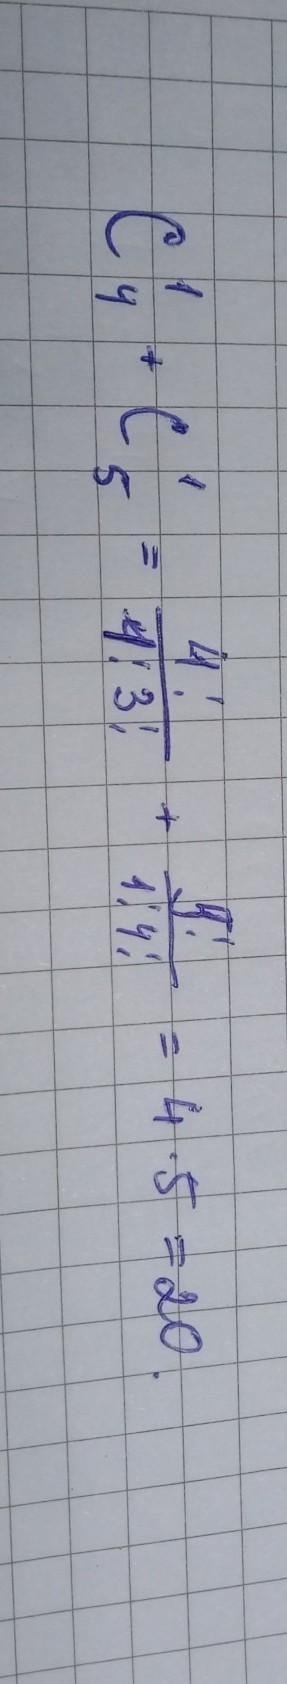 C₄¹ + C₅¹ = 4!/4!3! + 5!/1!4! = 4·5 = 20.